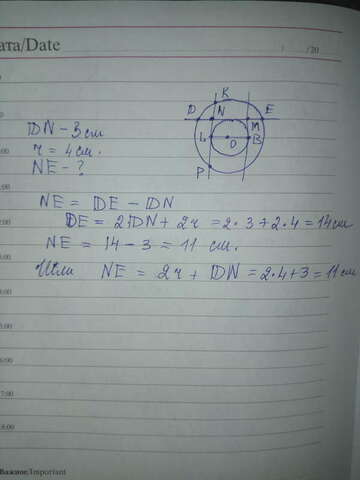 ата/Date
/ /20
K
D N E
M
L O B
P
DN - 3 см
r = 4 см.
NE - ?
NE = DE - DN
DE = 2DN + 2r = 2·3+2·4 = 14 см
NE = 14 - 3 = 11 см.
Или NE = 2r + DN = 2·4+3 = 11 см
6:00
7:00
8:00
Важное/Important